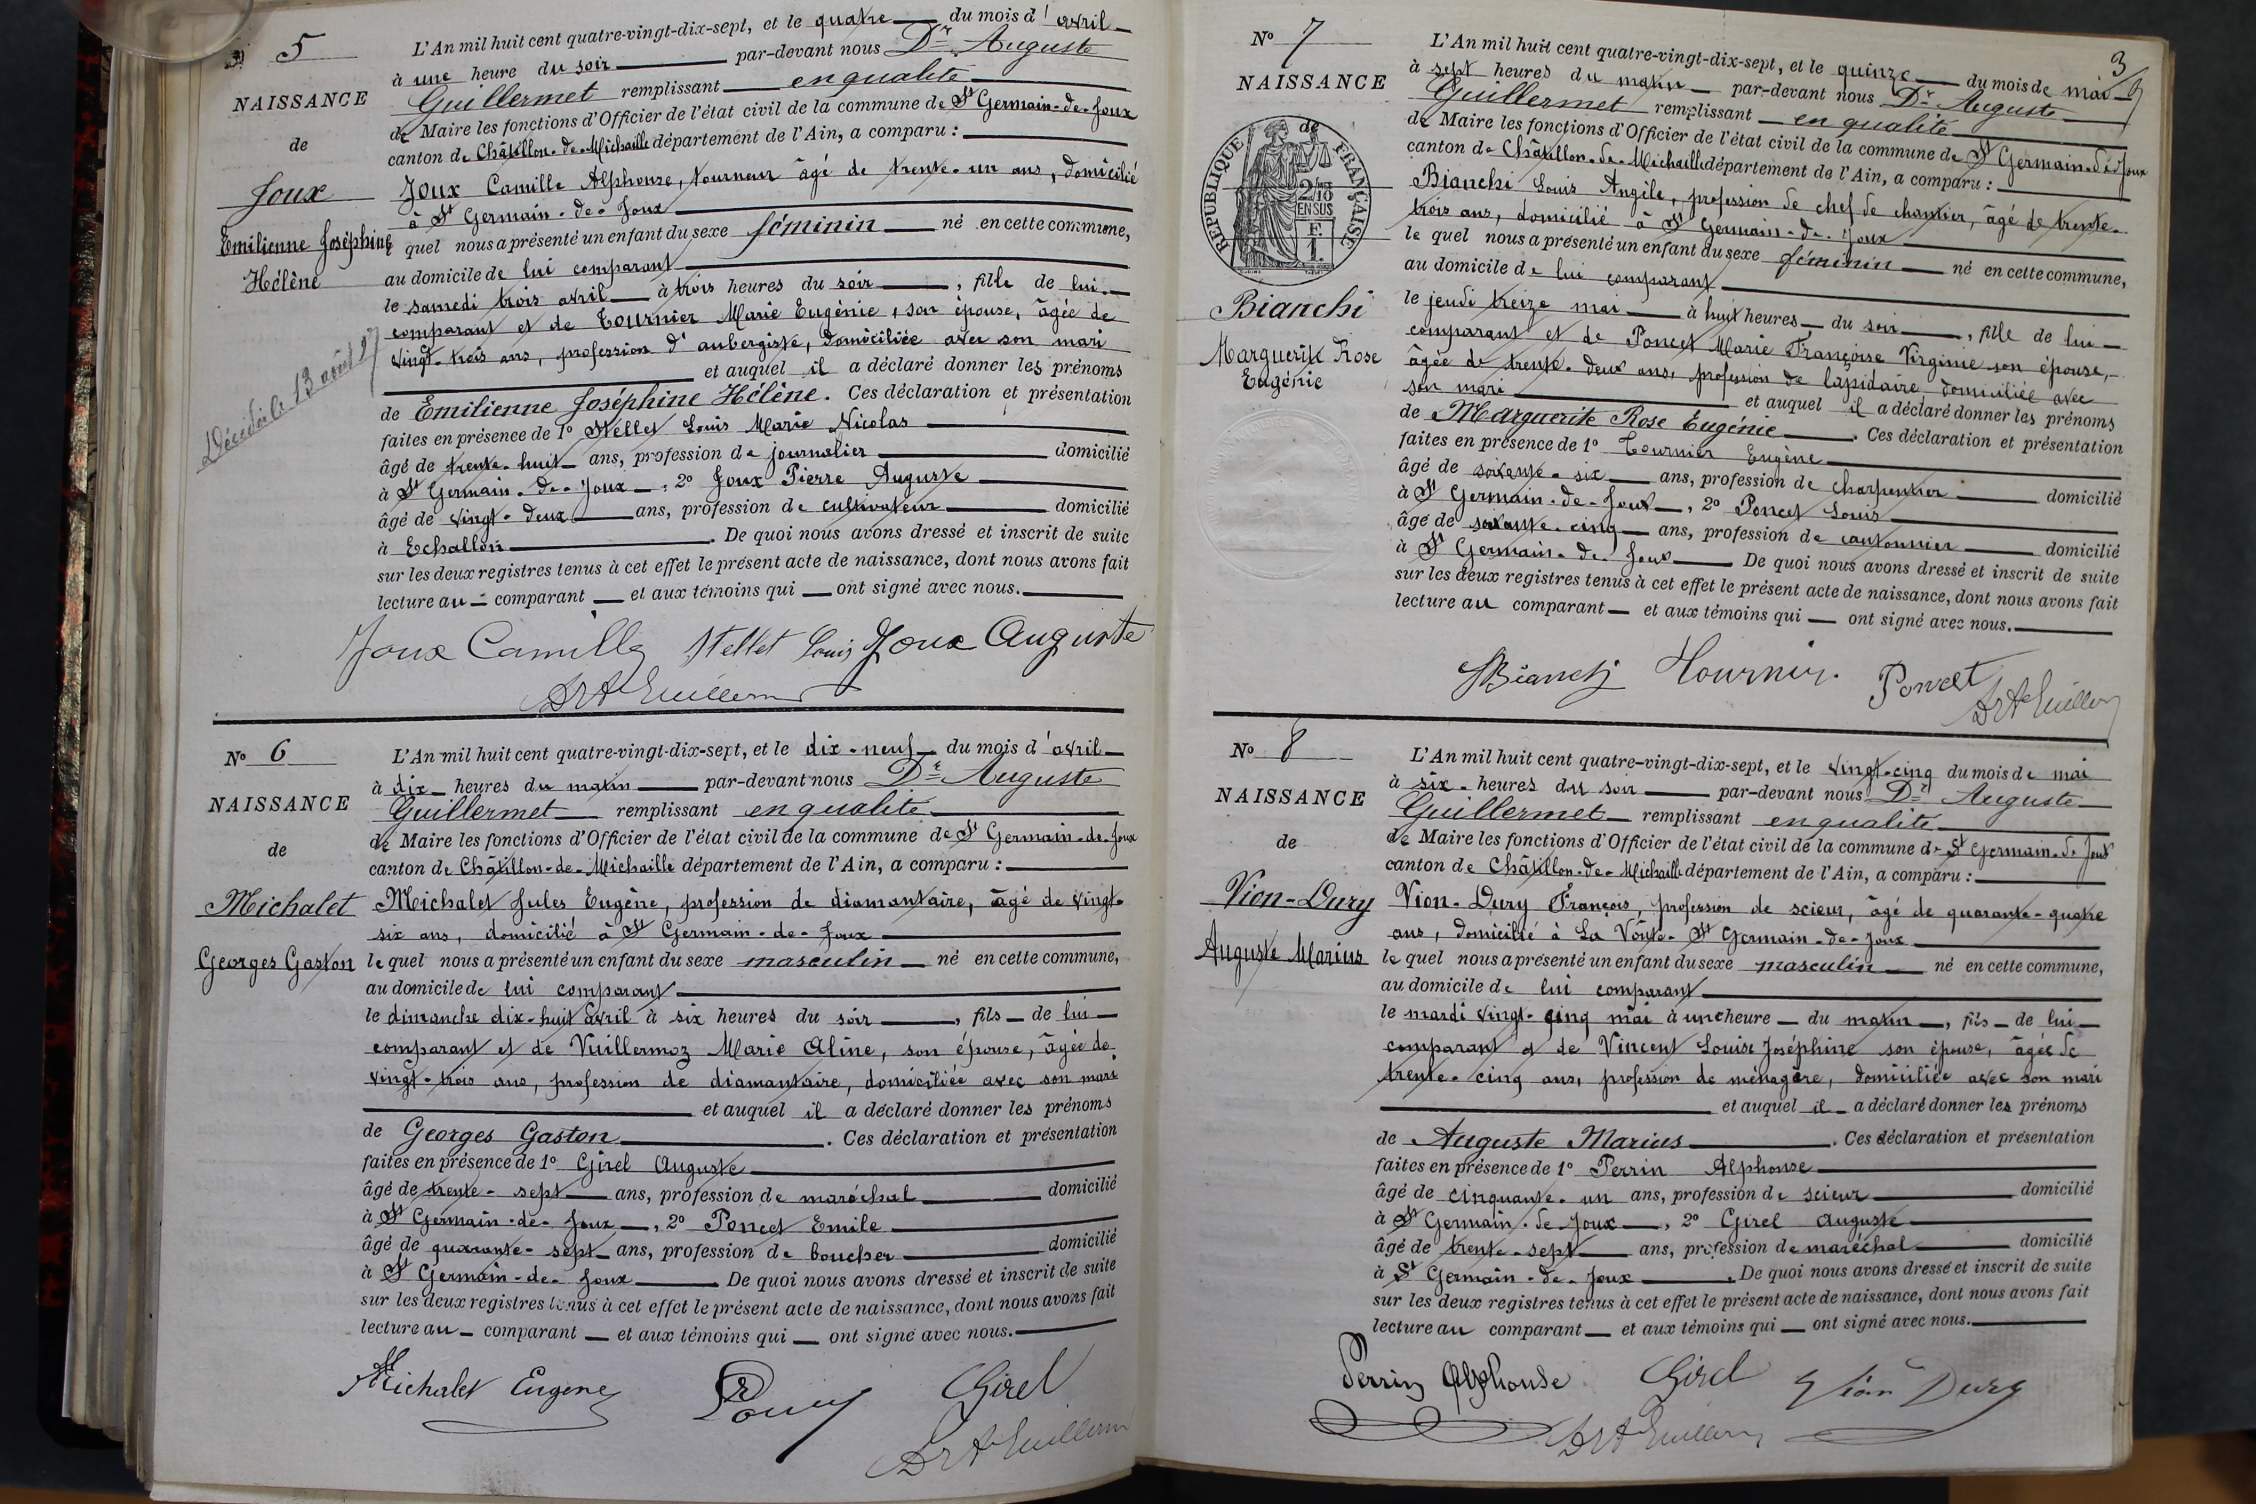 No 5
NAISSANCE
de
Joux
Emilienne Joséphine
Hélène
Décédée le 13 août 97
L'An mil huit cent quatre-vingt-dix-sept, et le quatre du mois d'avril
à une heure du soir par-devant nous Dr Auguste
Guillermet remplissant en qualité
de Maire les fonctions d'Officier de l'état civil de la commune de St Germain-de-Joux
canton de Châtillon-de-Michaille département de l'Ain, a comparu :
Joux Camille Alphonse, tourneur âgé de trente-un ans, domicilié
à St Germain-de-Joux
quel nous a présenté un enfant du sexe féminin né en cette commune,
au domicile de lui comparant
le samedi trois avril à trois heures du soir, fille de lui
comparant et de Tournier Marie Eugénie, son épouse, âgée de
vingt-trois ans, profession d'aubergiste, domiciliée avec son mari
et auquel il a déclaré donner les prénoms
de Emilienne Joséphine Hélène. Ces déclaration et présentation
faites en présence de 1o Stellet Louis Marie Nicolas
âgé de trente-huit ans, profession de journalier domicilié
à St Germain-de-Joux, 2o Joux Pierre Auguste
âgé de vingt-deux ans, profession de cultivateur domicilié
à Echallon. De quoi nous avons dressé et inscrit de suite
sur les deux registres tenus à cet effet le présent acte de naissance, dont nous avons fait
lecture au comparant et aux témoins qui ont signé avec nous.
Joux Camille Stellet Louis Joux Auguste
Dr A Guillerm
No 6
NAISSANCE
de
Michalet
Georges Gaston
L'An mil huit cent quatre-vingt-dix-sept, et le dix-neuf du mois d'avril
à dix heures du matin par-devant nous Dr Auguste
Guillermet remplissant en qualité
de Maire les fonctions d'Officier de l'état civil de la commune de St Germain-de-Joux
canton de Châtillon-de-Michaille département de l'Ain, a comparu :
Michalet Jules Eugène, profession de diamantaire, âgé de vingt-
six ans, domicilié à St Germain-de-Joux
le quel nous a présenté un enfant du sexe masculin né en cette commune,
au domicile de lui comparant
le dimanche dix-huit avril à six heures du soir, fils de lui
comparant et de Vuillermoz Marie Aline, son épouse, âgée de
vingt-trois ans, profession de diamantaire, domiciliée avec son mari
et auquel il a déclaré donner les prénoms
de Georges Gaston. Ces déclaration et présentation
faites en présence de 1o Girel Auguste
âgé de trente-sept ans, profession de maréchal domicilié
à St Germain-de-Joux, 2o Poncet Emile
âgé de quarante-sept ans, profession de boucher domicilié
à St Germain-de-Joux. De quoi nous avons dressé et inscrit de suite
sur les deux registres tenus à cet effet le présent acte de naissance, dont nous avons fait
lecture au comparant et aux témoins qui ont signé avec nous.
Michalet Eugene Girel
Dr A Guillerm
3
No 7
NAISSANCE
de
RÉPUBLIQUE FRANÇAISE
2/10 EN SUS
Bianchi
Marguerite Rose
Eugénie
L'An mil huit cent quatre-vingt-dix-sept, et le quinze du mois de mai
à sept heures du matin par-devant nous Dr Auguste
Guillermet remplissant en qualité
de Maire les fonctions d'Officier de l'état civil de la commune de St Germain-de-Joux
canton de Châtillon-de-Michaille département de l'Ain, a comparu :
Bianchi Louis Angile, profession de chef de chantier, âgé de trente-
trois ans, domicilié à St Germain-de-Joux
le quel nous a présenté un enfant du sexe féminin né en cette commune,
au domicile de lui comparant
le jeudi treize mai à huit heures du soir, fille de lui
comparant et de Poncet Marie Françoise Virginie son épouse,
âgée de trente-deux ans, profession de lapidaire domiciliée avec
son mari et auquel il a déclaré donner les prénoms
de Marguerite Rose Eugénie. Ces déclaration et présentation
faites en présence de 1o Tournier Eugène
âgé de soixante-six ans, profession de charpentier domicilié
à St Germain-de-Joux, 2o Poncet Louis
âgé de soixante-cinq ans, profession de cantonnier domicilié
à St Germain-de-Joux. De quoi nous avons dressé et inscrit de suite
sur les deux registres tenus à cet effet le présent acte de naissance, dont nous avons fait
lecture au comparant et aux témoins qui ont signé avec nous.
Bianchi Tournier. Poncet
Dr A Guillerm
No 8
NAISSANCE
de
Vion-Dury
Auguste Marius
L'An mil huit cent quatre-vingt-dix-sept, et le vingt-cinq du mois de mai
à six heures du soir par-devant nous Dr Auguste
Guillermet remplissant en qualité
de Maire les fonctions d'Officier de l'état civil de la commune de St Germain-de-Joux
canton de Châtillon-de-Michaille département de l'Ain, a comparu :
Vion-Dury François, profession de scieur, âgé de quarante-quatre
ans, domicilié à La Voûte-St Germain-de-Joux
le quel nous a présenté un enfant du sexe masculin né en cette commune,
au domicile de lui comparant
le mardi vingt-cinq mai à une heure du matin, fils de lui
comparant et de Vincent Louise Joséphine son épouse, âgée de
trente-cinq ans, profession de ménagère, domiciliée avec son mari
et auquel il a déclaré donner les prénoms
de Auguste Marius. Ces déclaration et présentation
faites en présence de 1o Perrin Alphonse
âgé de cinquante-un ans, profession de scieur domicilié
à St Germain-de-Joux, 2o Girel Auguste
âgé de trente-sept ans, profession de maréchal domicilié
à St Germain-de-Joux. De quoi nous avons dressé et inscrit de suite
sur les deux registres tenus à cet effet le présent acte de naissance, dont nous avons fait
lecture au comparant et aux témoins qui ont signé avec nous.
Perrin Alphonse Girel Vion Dury
Dr A Guillerm